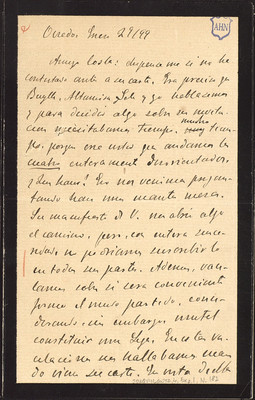 AHN
Oviedo, Enero 29/99
Amigo Costa: dispense me si no he
contestado antes a su carta. Era preciso que
Buylla, Altamira, Sela y yo hablásemos
y para decidir algo sobre su invita-
cion necesitabamos tiempo, mucho tiem-
po, porque ese notas que andamos los
cuatro enteramente desorientados,
¿Que hacer? Eso nos venimos pregun-
tando hace una cuanta meses.
Su manifiesto de V. nos abrio algo
el camino, pero, con entera since-
ridad no podriamos suscribirlo
en todas sus partes. Ademas, vaci-
lamos sobre si sera conveniente
formar el nuevo partido, consi-
derando sin embargo muy util
constituir una Liga. En estas va-
cilaciones nos hallabamos cuan-
do vino su carta. En vista de ella